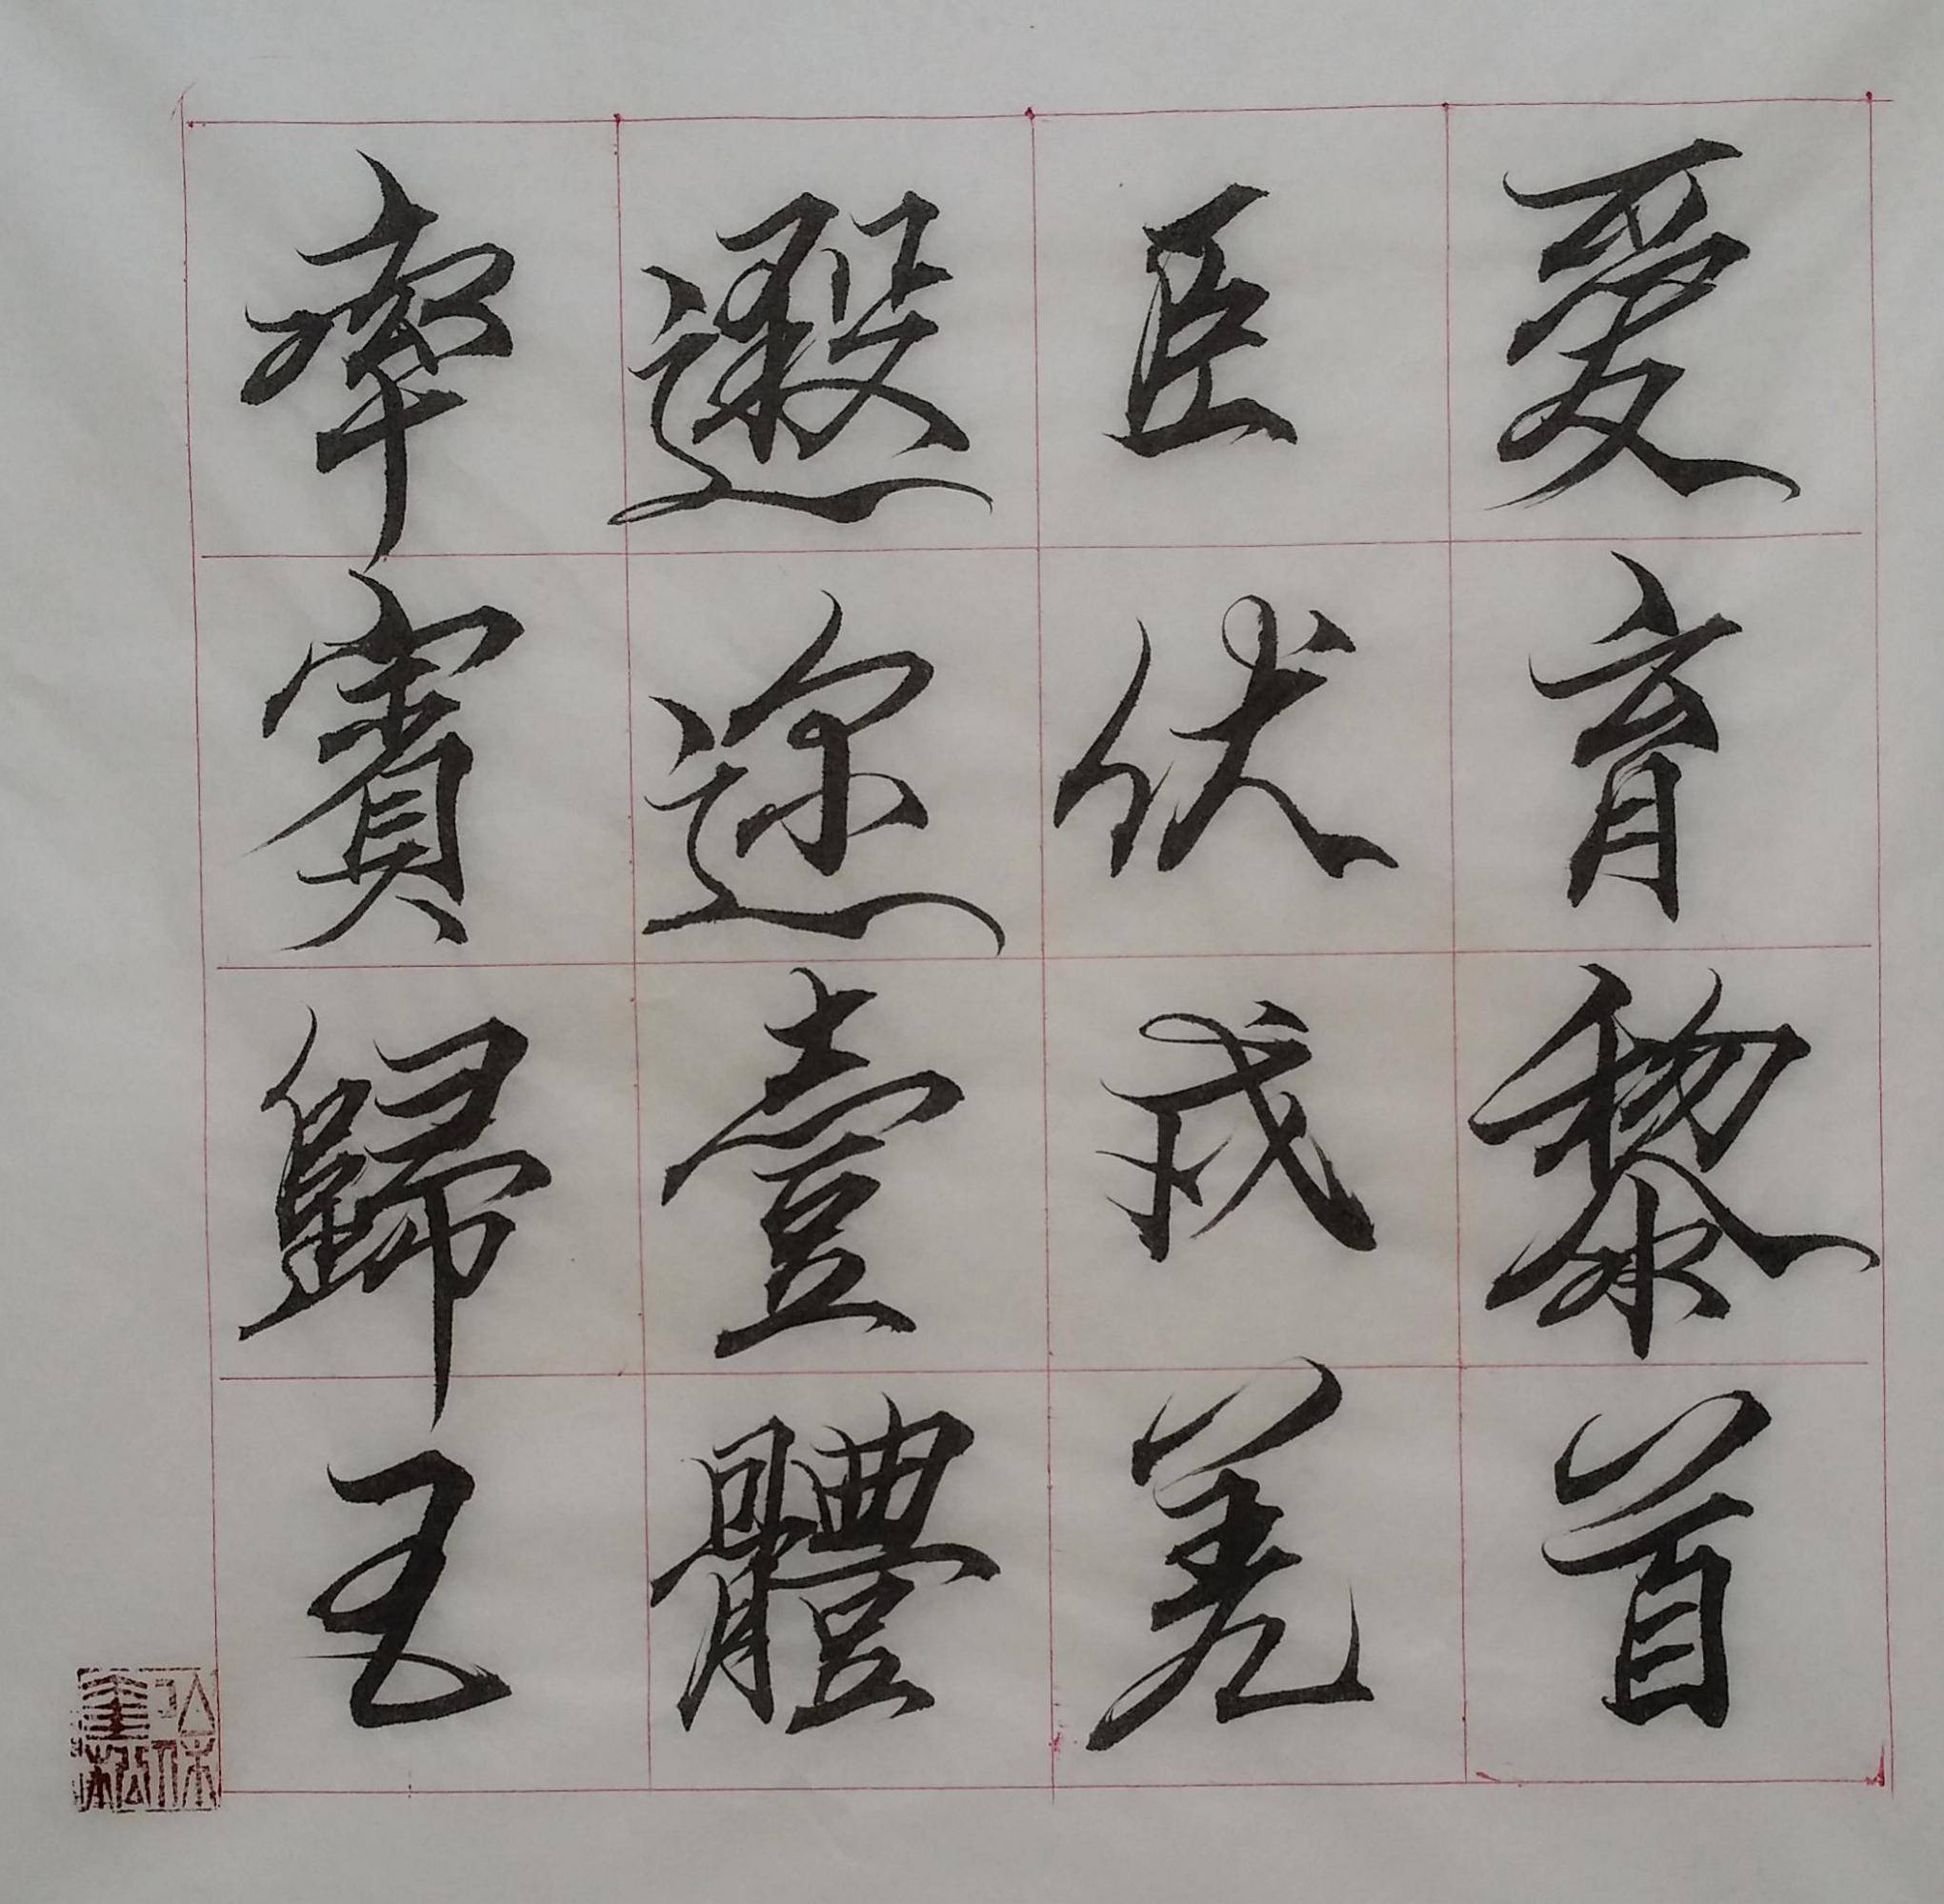 愛育黎首
臣伏戎羌
遐迩壹體
率賓歸王